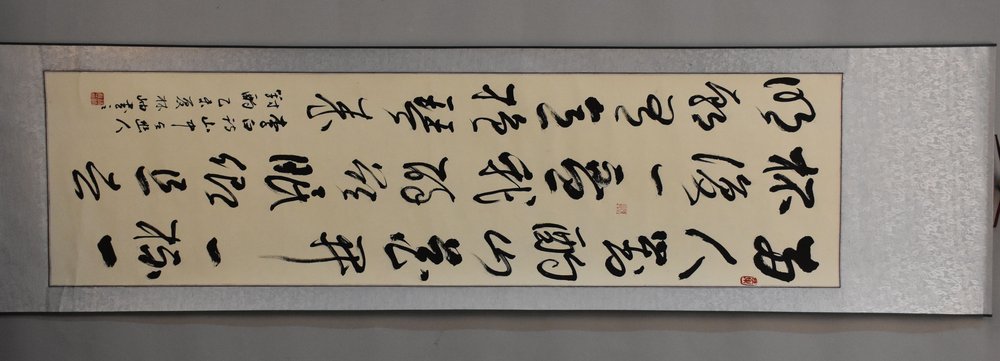 两人對酌山花開一杯一
杯復一杯我醉欲眠卿且去
明朝有意抱琴來
李白詩山中与幽人
對酌乙未夏書